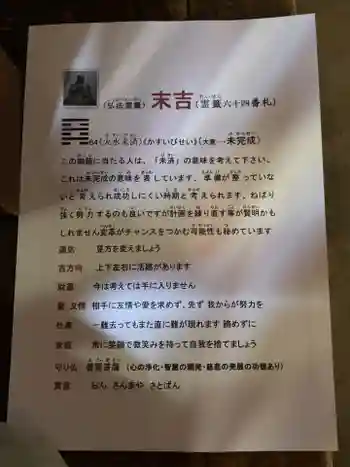 (弘法霊籤) 末吉 (霊籤六十四番札)
64(火水未済)《かすいびせい》(大意…未完成)
この御籤に当たる人は、「未済」の意味を考えて下さい。
これは未完成の意味を表しています。準備が整っていな
いと考えられ成功しにくい時期と考えられます。ねばり
強く努力するのも良いですが計画を練り直す事が賢明かも
しれません変革がチャンスをつかむ可能性も秘めています
見方を変えましょう
吉方向 上下左右に活路があります
財運 今は考えては手に入りません
愛 友情 相手に友情や愛を求めず、先ず 我からが努力を
仕事 一難去ってもまた直に難が現れます 諦めずに
家庭 常に笑顔で微笑みを持って自我を捨てましょう
守り仏 普賢菩薩 (心の浄化・智慧の開発・慈悲の発展の功徳あり)
真言 おん さんまや さとばん